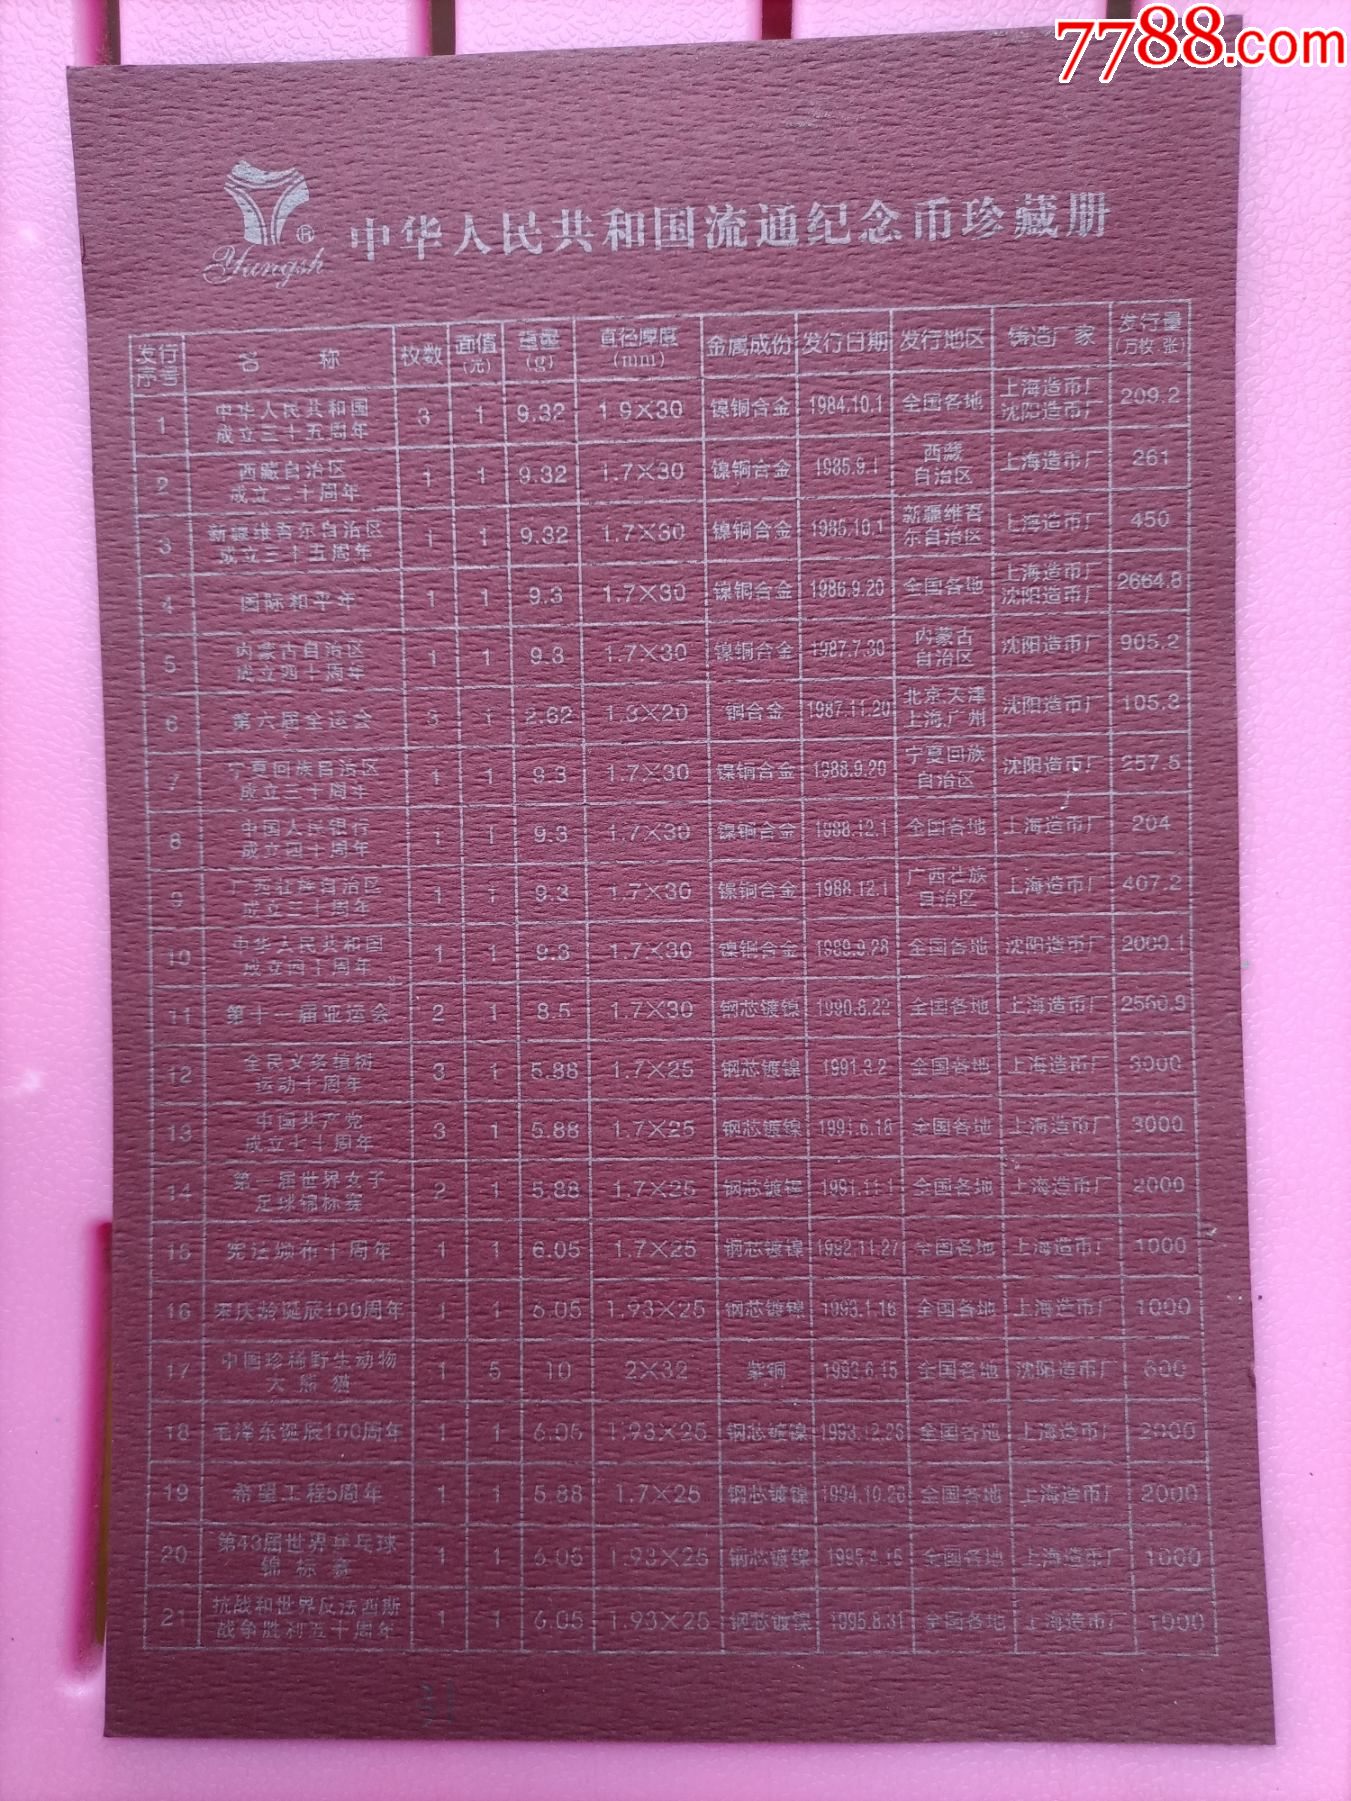 7788.com
Yungsh ®
中华人民共和国流通纪念币珍藏册
发行序号 名称 枚数 面值(元) 重量(g) 直径厚度(mm) 金属成份 发行日期 发行地区 铸造厂家 发行量(万枚 张)
1 中华人民共和国成立三十五周年 3 1 9.32 1.9×30 镍铜合金 1984.10.1 全国各地 上海造币厂 沈阳造币厂 209.2
2 西藏自治区成立二十周年 1 1 9.32 1.7×30 镍铜合金 1985.9.1 西藏自治区 上海造币厂 261
3 新疆维吾尔自治区成立三十五周年 1 1 9.32 1.7×30 镍铜合金 1985.10.1 新疆维吾尔自治区 上海造币厂 450
4 国际和平年 1 1 9.3 1.7×30 镍铜合金 1986.9.20 全国各地 上海造币厂 沈阳造币厂 2664.8
5 内蒙古自治区成立四十周年 1 1 9.3 1.7×30 镍铜合金 1987.7.30 内蒙古自治区 沈阳造币厂 905.2
6 第六届全运会 3 1 2.62 1.3×20 铜合金 1987.11.20 北京.天津 上海.广州 沈阳造币厂 105.3
7 宁夏回族自治区成立三十周年 1 1 9.3 1.7×30 镍铜合金 1988.9.20 宁夏回族自治区 沈阳造币厂 257.5
8 中国人民银行成立四十周年 1 1 9.3 1.7×30 镍铜合金 1988.12.1 全国各地 上海造币厂 204
9 广西壮族自治区成立三十周年 1 1 9.3 1.7×30 镍铜合金 1988.12.1 广西壮族自治区 上海造币厂 407.2
10 中华人民共和国成立四十周年 1 1 9.3 1.7×30 镍铜合金 1989.9.28 全国各地 沈阳造币厂 2000.1
11 第十一届亚运会 2 1 8.5 1.7×30 钢芯镀镍 1990.8.22 全国各地 上海造币厂 2560.3
12 全民义务植树运动十周年 3 1 5.88 1.7×25 钢芯镀镍 1991.3.2 全国各地 上海造币厂 3000
13 中国共产党成立七十周年 3 1 5.88 1.7×25 钢芯镀镍 1991.6.18 全国各地 上海造币厂 3000
14 第一届世界女子足球锦标赛 2 1 5.88 1.7×25 钢芯镀镍 1991.11.1 全国各地 上海造币厂 2000
15 宪法颁布十周年 1 1 6.05 1.7×25 钢芯镀镍 1992.11.27 全国各地 上海造币厂 1000
16 宋庆龄诞辰100周年 1 1 6.05 1.93×25 钢芯镀镍 1993.1.16 全国各地 上海造币厂 1000
17 中国珍稀野生动物大熊猫 1 5 10 2×32 紫铜 1993.6.15 全国各地 沈阳造币厂 600
18 毛泽东诞辰100周年 1 1 6.05 1.93×25 钢芯镀镍 1993.12.26 全国各地 上海造币厂 2000
19 希望工程5周年 1 1 5.88 1.7×25 钢芯镀镍 1994.10.26 全国各地 上海造币厂 2000
20 第43届世界乒乓球锦标赛 1 1 6.05 1.93×25 钢芯镀镍 1995.4.16 全国各地 上海造币厂 1000
21 抗战和世界反法西斯战争胜利五十周年 1 1 6.05 1.93×25 钢芯镀镍 1995.8.31 全国各地 上海造币厂 1000